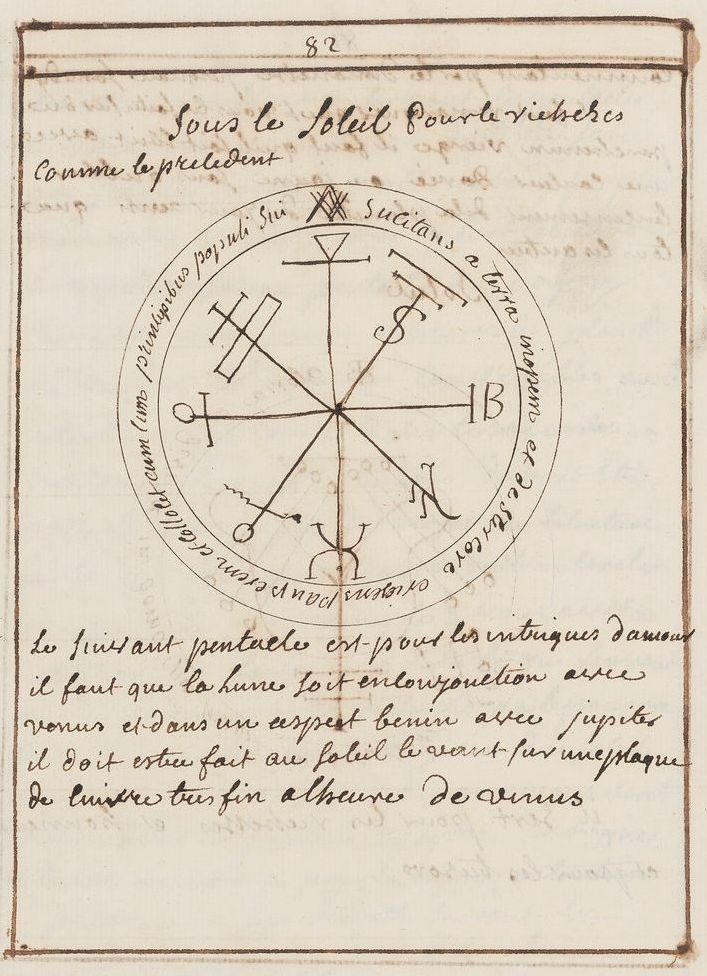 82
Sous le Soleil Pour le richeses
Comme le precedent
Sucitans a terra inopem et de stercore erigens pauperem et collocet eum cum principibus populi sui
S
B
Le suivant pentacle est pour les intrigues damour
il faut que la lune soit en conjonction avec
venus et dans un aspect benin avec jupiter
il doit estre fait au soleil levant sur une plaque
de cuivre tres fin a lheure de venus